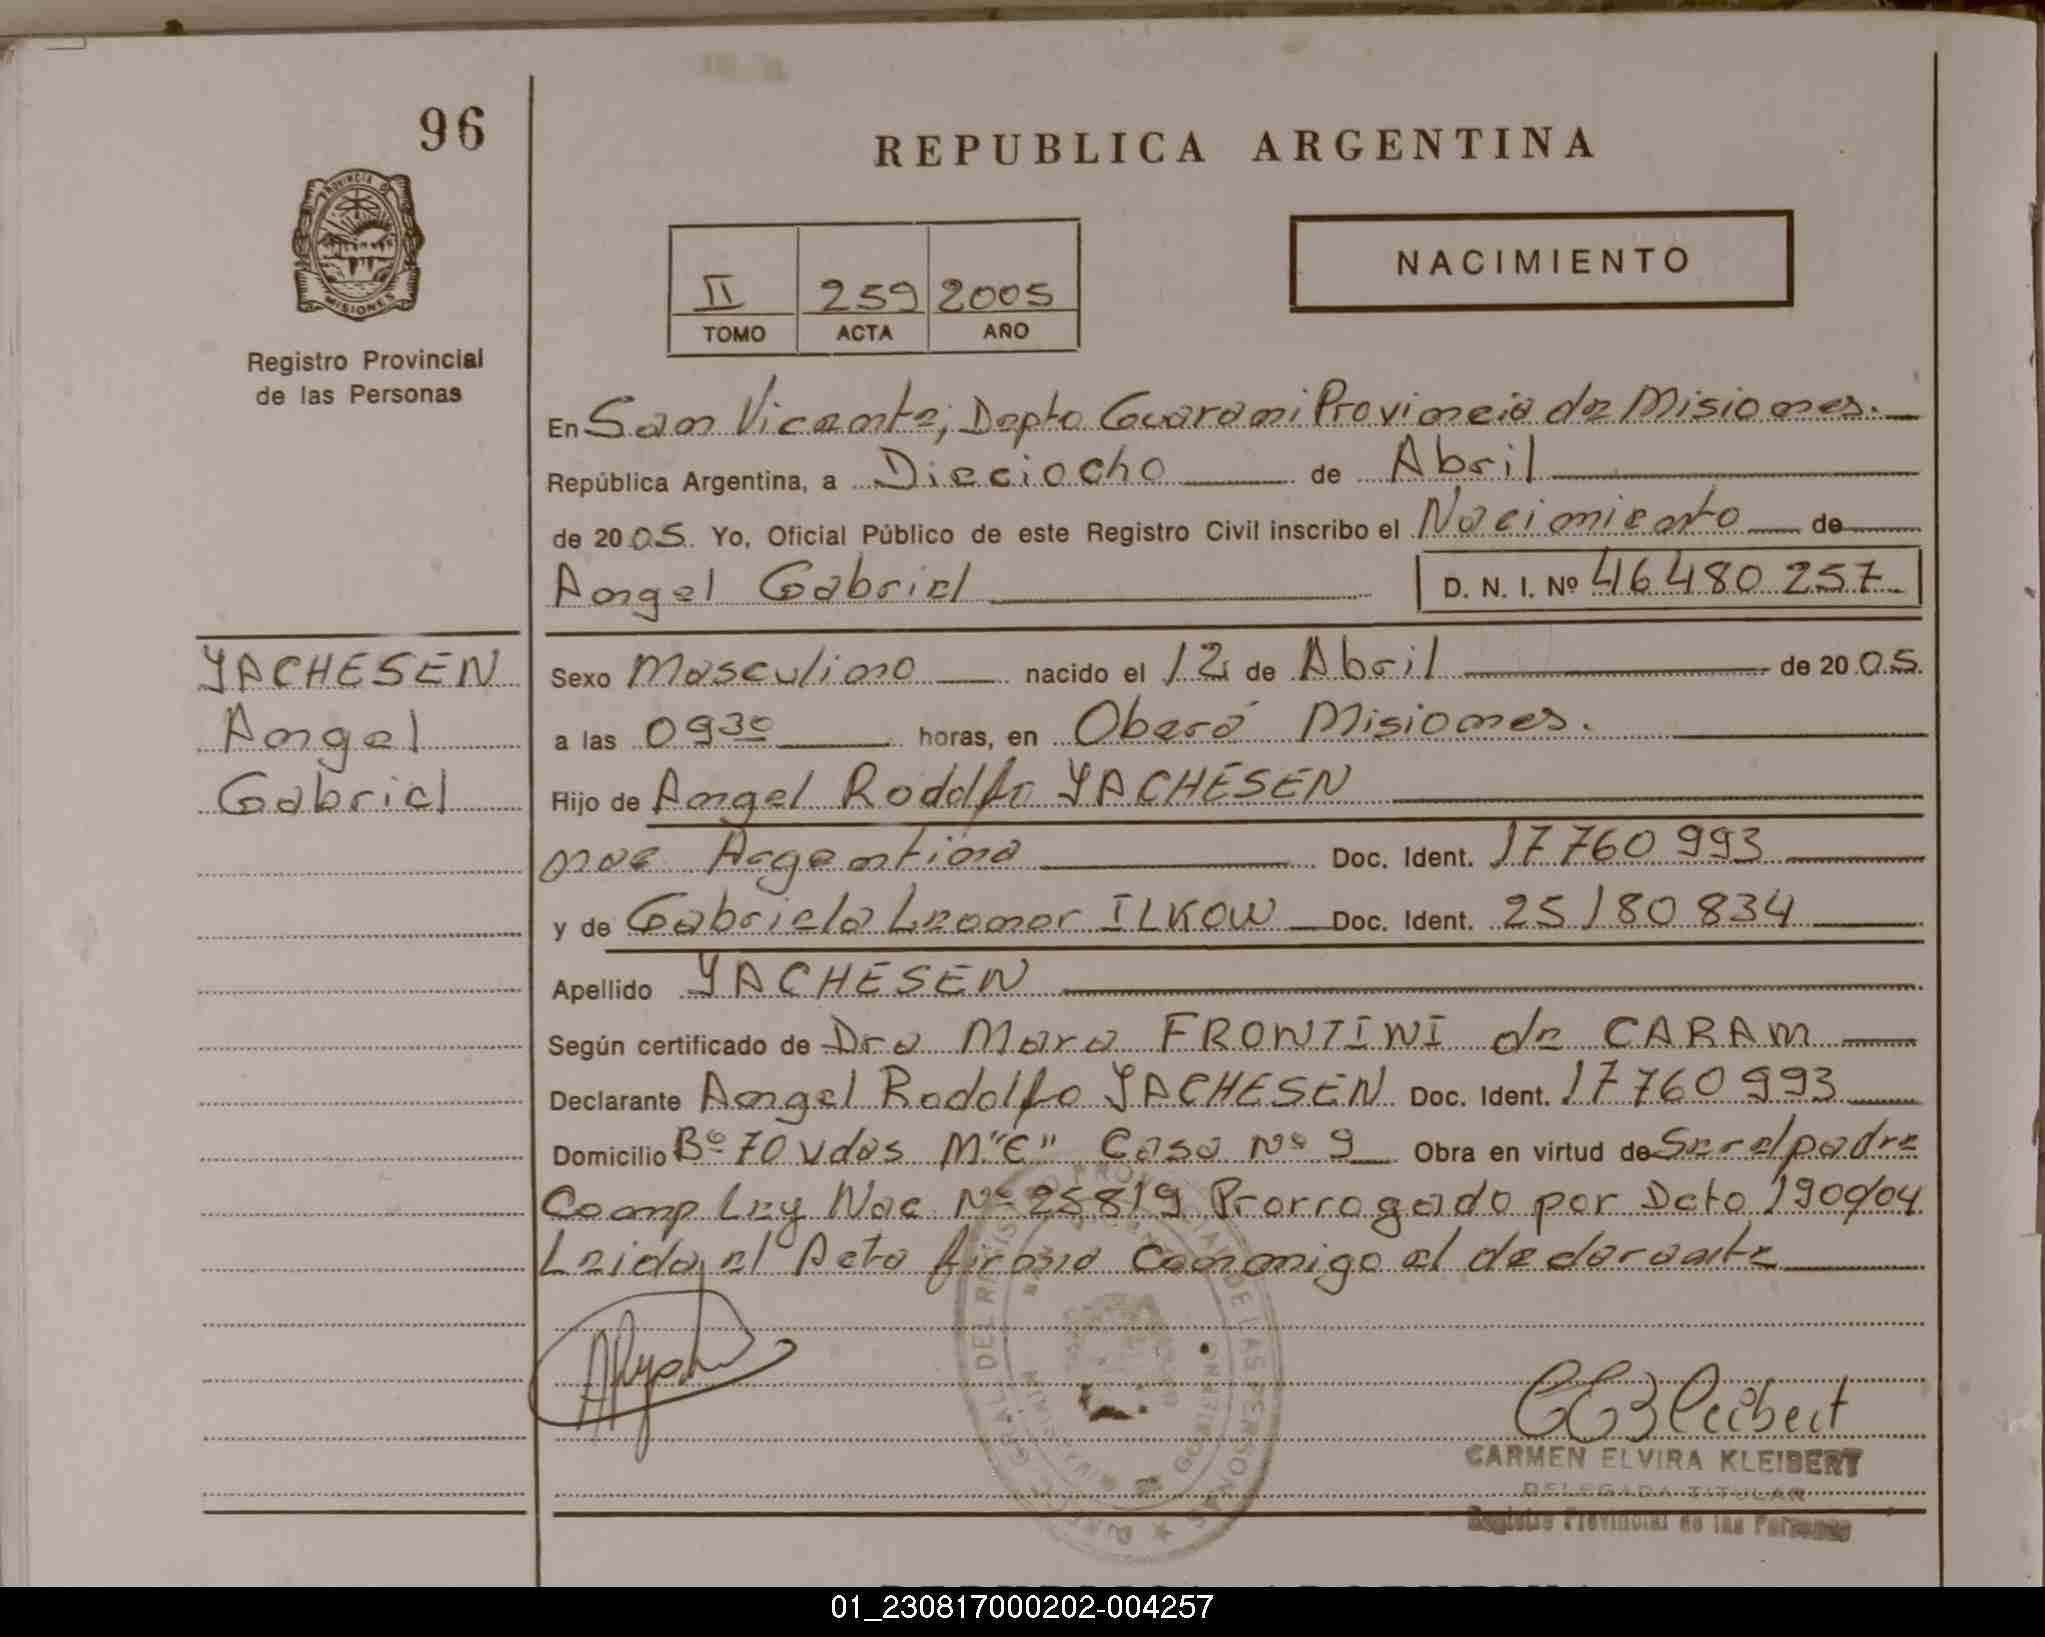 96
REPUBLICA ARGENTINA
PROVINCIA DE
MISIONES
Registro Provincial
de las Personas
NACIMIENTO
II 259 2005
TOMO ACTA AÑO
En San Vicente, Depto Guarani Provincia de Misiones.
República Argentina, a Dieciocho de Abril
de 2005. Yo, Oficial Público de este Registro Civil inscribo el Nacimiento de
Angel Gabriel D. N. I. Nº 46 480 257
YACHESEN
Angel
Gabriel
Sexo Masculino nacido el 12 de Abril de 2005.
a las 09 30 horas, en Oberá Misiones.
Hijo de Angel Rodolfo YACHESEN
nac Argentina Doc. Ident. 17 760 993
y de Gabriela Leonor ILKOW Doc. Ident. 25 180 834
Apellido YACHESEN
Según certificado de Dra Mara FRONTINI de CARAM
Declarante Angel Rodolfo YACHESEN Doc. Ident. 17 760 993
Domicilio Bº 70 vdas M"C" Casa Nº 9 Obra en virtud de Ser el padre
Comp Ley Nac Nº 25819 Prorrogado por Dcto 1900/04
Leida el Acta firma conmigo el declarante
CARMEN ELVIRA KLEIBERT
DELEGADA TITULAR
Registro Provincial de las Personas
01_230817000202-004257